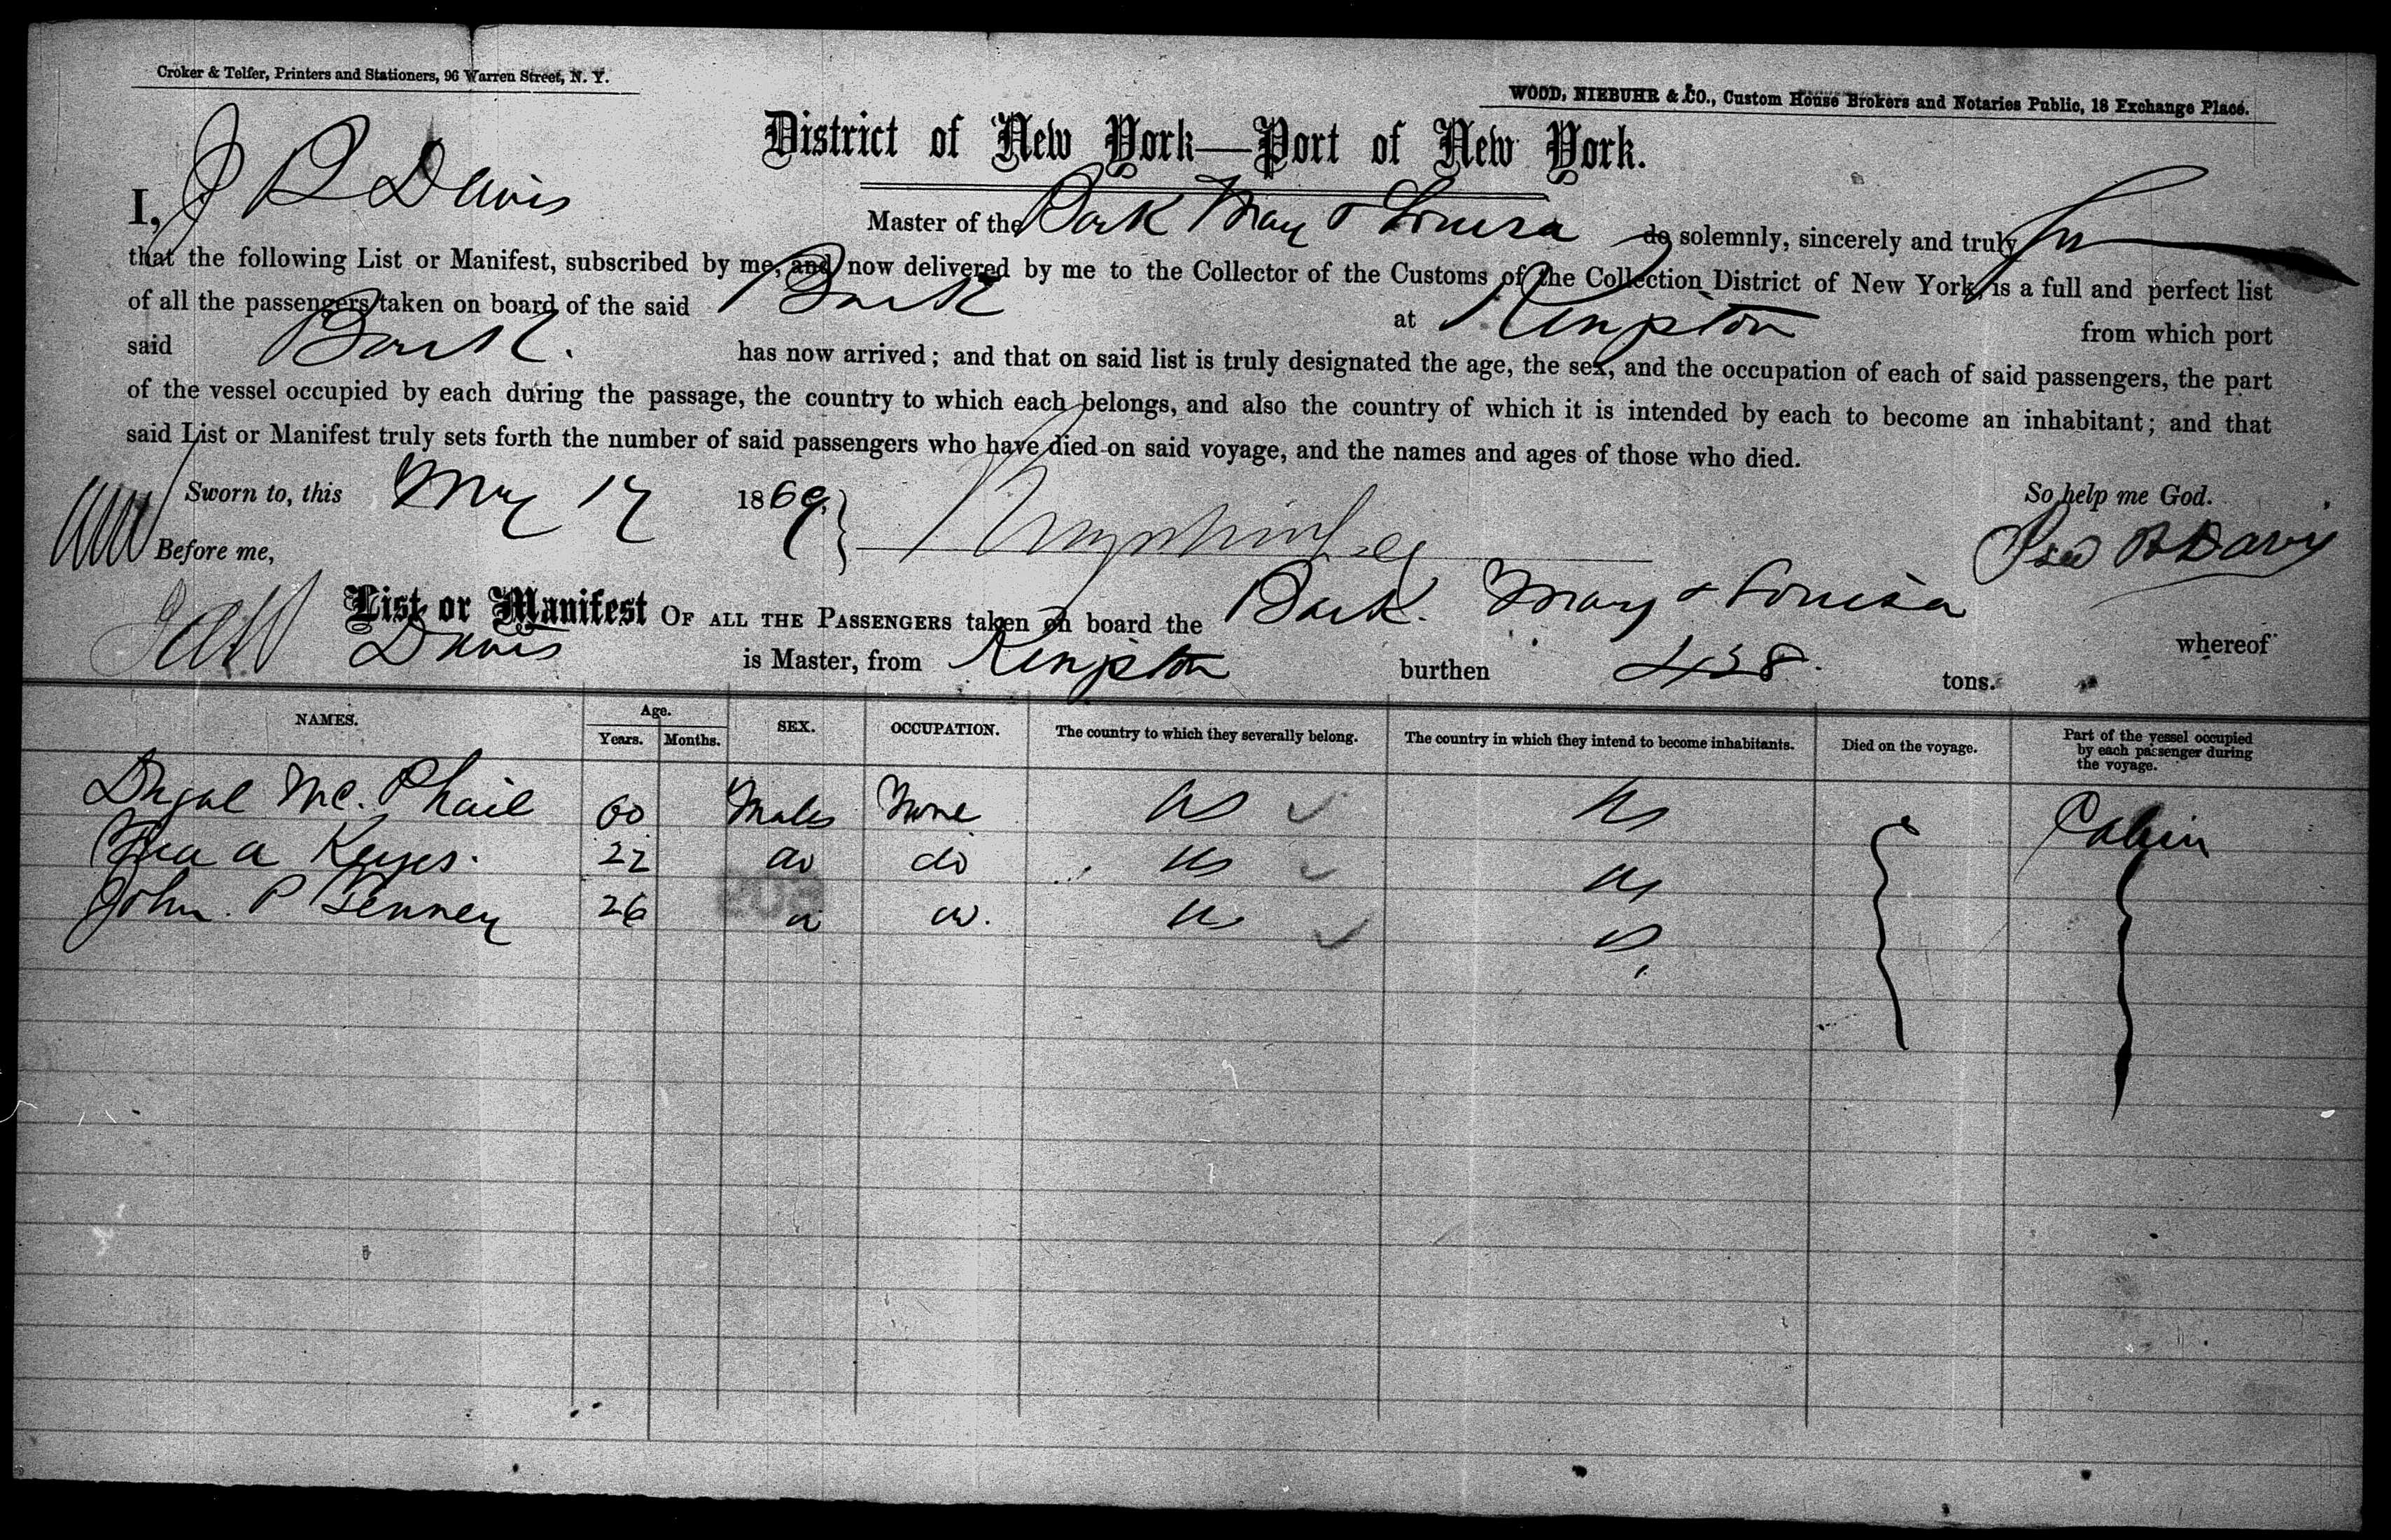 Croker & Telfer, Printers and Stationers, 96 Warren Street, N. Y.
WOOD, NIEBUHR & CO., Custom House Brokers and Notaries Public, 18 Exchange Place.
District of New York—Port of New York.
I, J B Davis Master of the Bark Mary & Louisa do solemnly, sincerely and truly
that the following List or Manifest, subscribed by me, and now delivered by me to the Collector of the Customs of the Collection District of New York, is a full and perfect list
of all the passengers taken on board of the said Bark at Kingston from which port
said Bark. has now arrived; and that on said list is truly designated the age, the sex, and the occupation of each of said passengers, the part
of the vessel occupied by each during the passage, the country to which each belongs, and also the country of which it is intended by each to become an inhabitant; and that
said List or Manifest truly sets forth the number of said passengers who have died on said voyage, and the names and ages of those who died.
Sworn to, this May 17 1869, So help me God.
Before me, B Davis
List or Manifest OF ALL THE PASSENGERS taken on board the Bark. Mary & Louisa whereof
Davis is Master, from Kingston burthen 438 tons.
NAMES. Age. Years. Months. SEX. OCCUPATION. The country to which they severally belong. The country in which they intend to become inhabitants. Died on the voyage. Part of the vessel occupied by each passenger during the voyage.
Dugal Mc. Phail 60 Males None US US Cabin
Ira A Keyes. 22 do do US US
John. P Tenney 26 do do. US US